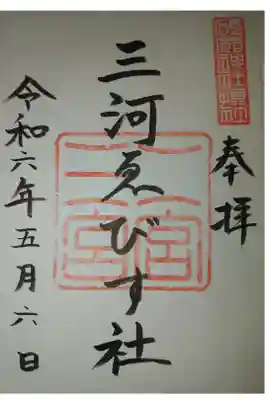 奉拝
三河ゑびす社
令和六年五月六日